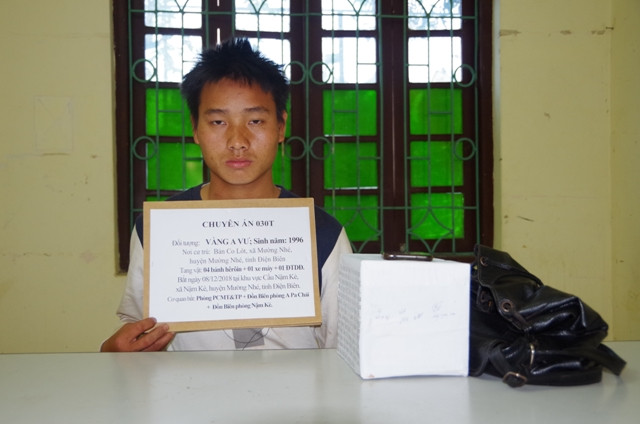 CHUYÊN ÁN 030T
Đối tượng: VÀNG A VƯ; Sinh năm: 1996
Nơi cư trú: Bản Co Lót, xã Mường Nhé,
huyện Mường Nhé, tỉnh Điện Biên
Tang vật: 04 bánh hêrôin + 01 xe máy + 01 ĐTDĐ.
Bắt ngày 08/12/2018 tại khu vực Cầu Nậm Kè,
xã Nậm Kè, huyện Mường Nhé, tỉnh Điện Biên.
Cơ quan bắt: Phòng PCMT&TP + Đồn Biên phòng A Pa Chải
+ Đồn Biên phòng Nậm Kè.